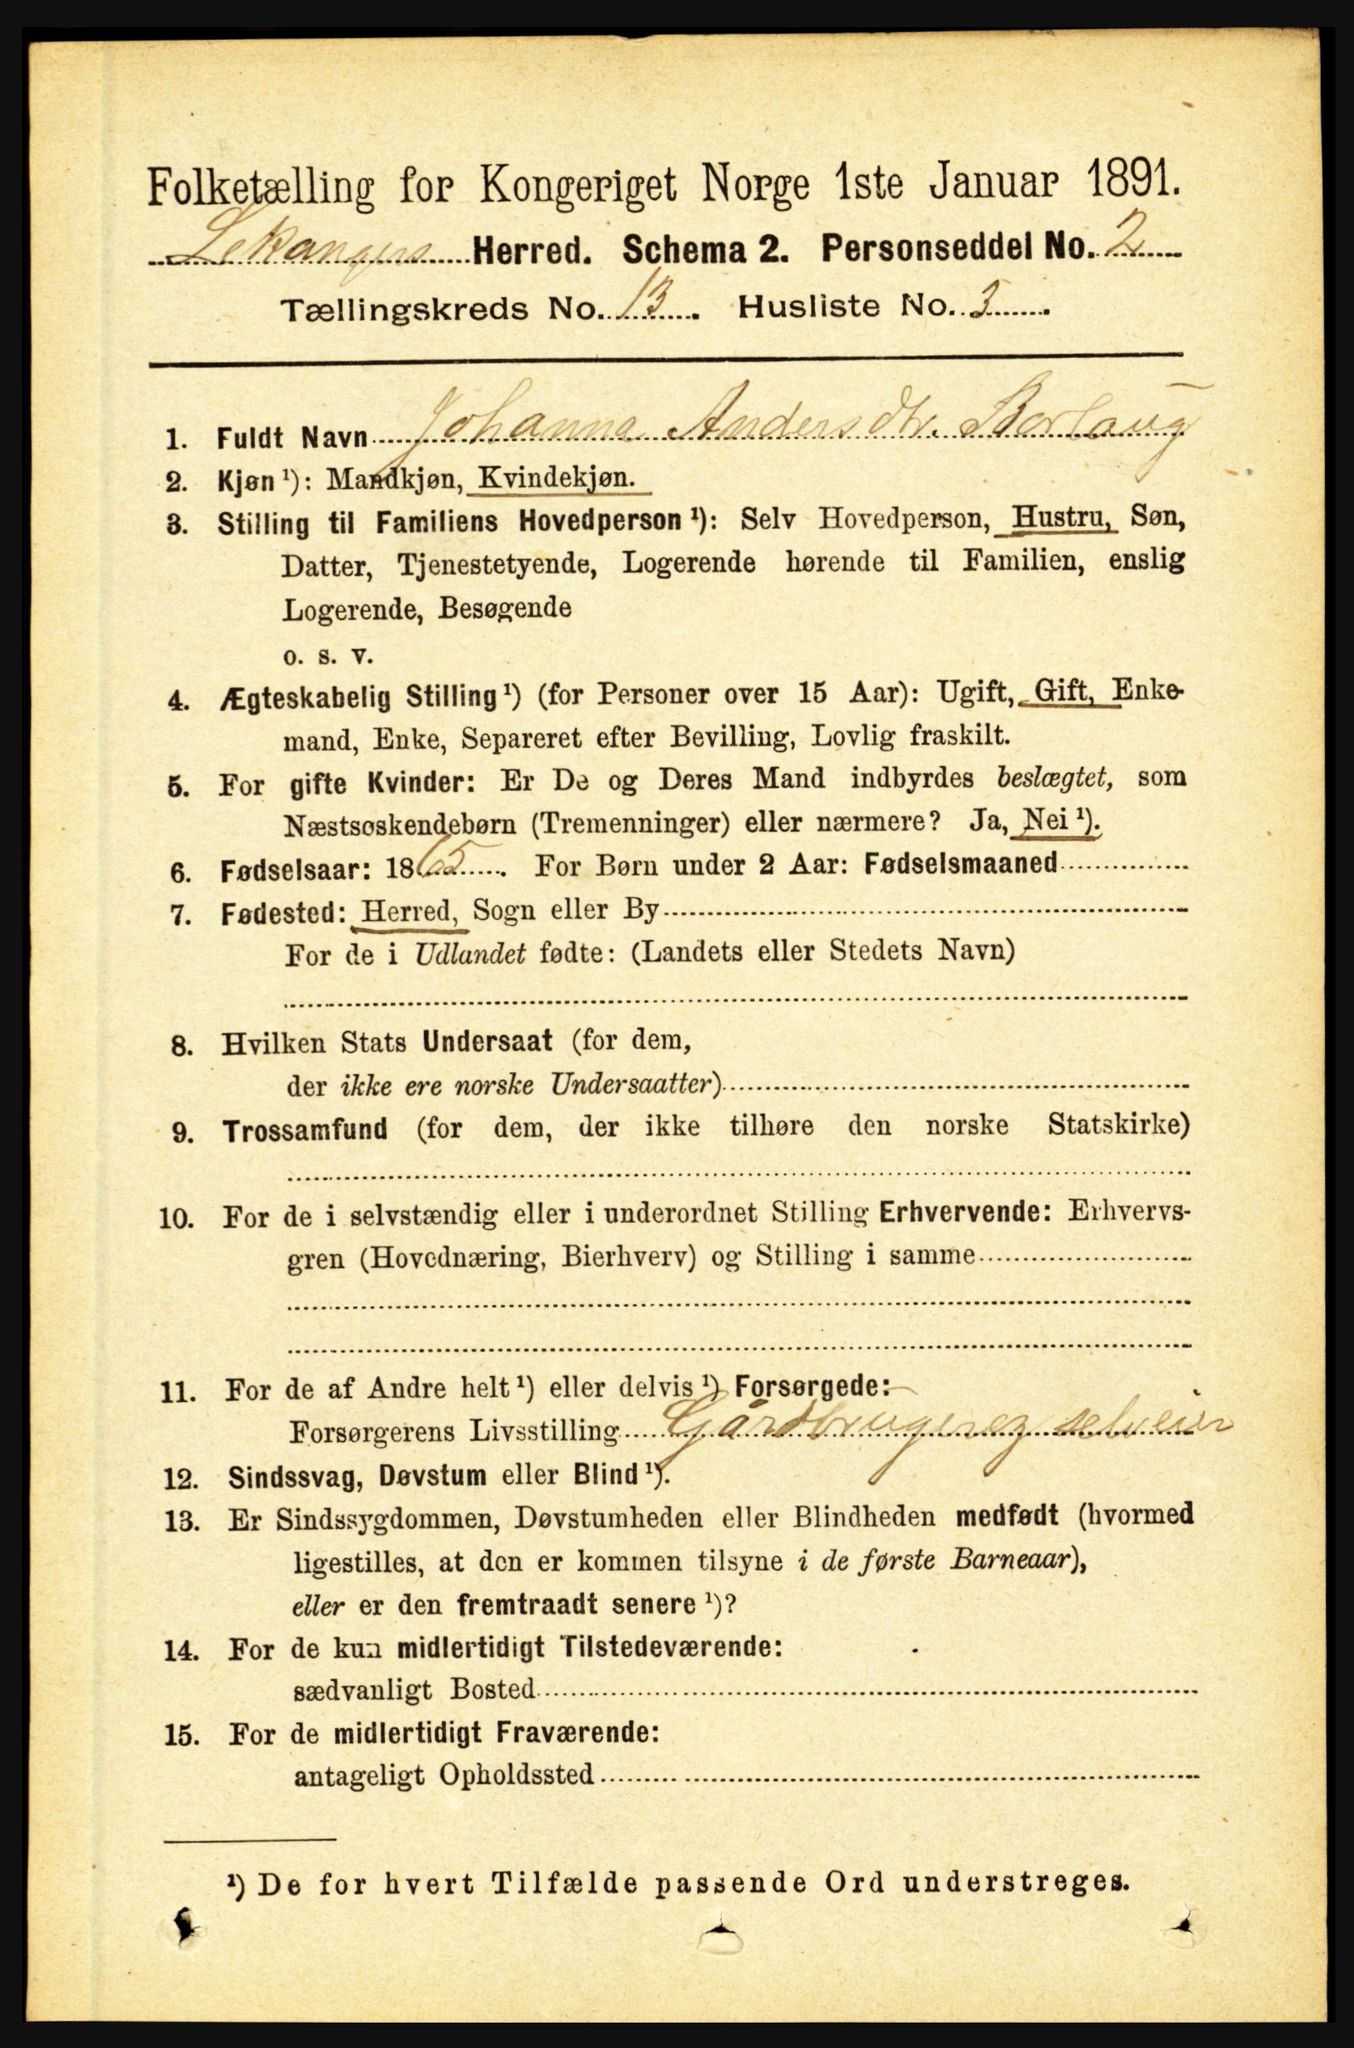 Folketælling for Kongeriget Norge 1ste Januar 1891.
Lekangers Herred. Schema 2. Personseddel No. 2
Tællingskreds No. 13. Husliste No. 3.
1. Fuldt Navn Johanna Andersdtr. Borlaug
2. Kjøn ¹): Mandkjøn, Kvindekjøn.
3. Stilling til Familiens Hovedperson ¹): Selv Hovedperson, Hustru, Søn,
Datter, Tjenestetyende, Logerende hørende til Familien, enslig
Logerende, Besøgende
o. s. v.
4. Ægteskabelig Stilling ¹) (for Personer over 15 Aar): Ugift, Gift, Enke-
mand, Enke, Separeret efter Bevilling, Lovlig fraskilt.
5. For gifte Kvinder: Er De og Deres Mand indbyrdes beslægtet, som
Næstsøskendebørn (Tremenninger) eller nærmere? Ja, Nei ¹).
6. Fødselsaar: 1865. For Børn under 2 Aar: Fødselsmaaned
7. Fødested: Herred, Sogn eller By
For de i Udlandet fødte: (Landets eller Stedets Navn)
8. Hvilken Stats Undersaat (for dem,
der ikke ere norske Undersaatter)
9. Trossamfund (for dem, der ikke tilhøre den norske Statskirke)
10. For de i selvstændig eller i underordnet Stilling Erhvervende: Erhvervs-
gren (Hovednæring, Bierhverv) og Stilling i samme
11. For de af Andre helt ¹) eller delvis ¹) Forsørgede:
Forsørgerens Livsstilling Gårdbruger, selveier
12. Sindssvag, Døvstum eller Blind ¹).
13. Er Sindssygdommen, Døvstumheden eller Blindheden medfødt (hvormed
ligestilles, at den er kommen tilsyne i de første Barneaar),
eller er den fremtraadt senere ¹)?
14. For de kun midlertidigt Tilstedeværende:
sædvanligt Bosted
15. For de midlertidigt Fraværende:
antageligt Opholdssted
¹) De for hvert Tilfælde passende Ord understreges.